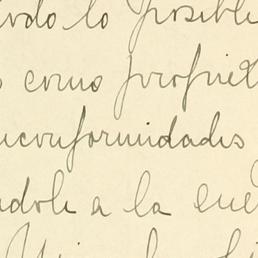 todo lo posible
como propiet
inconformidades
ndole a la